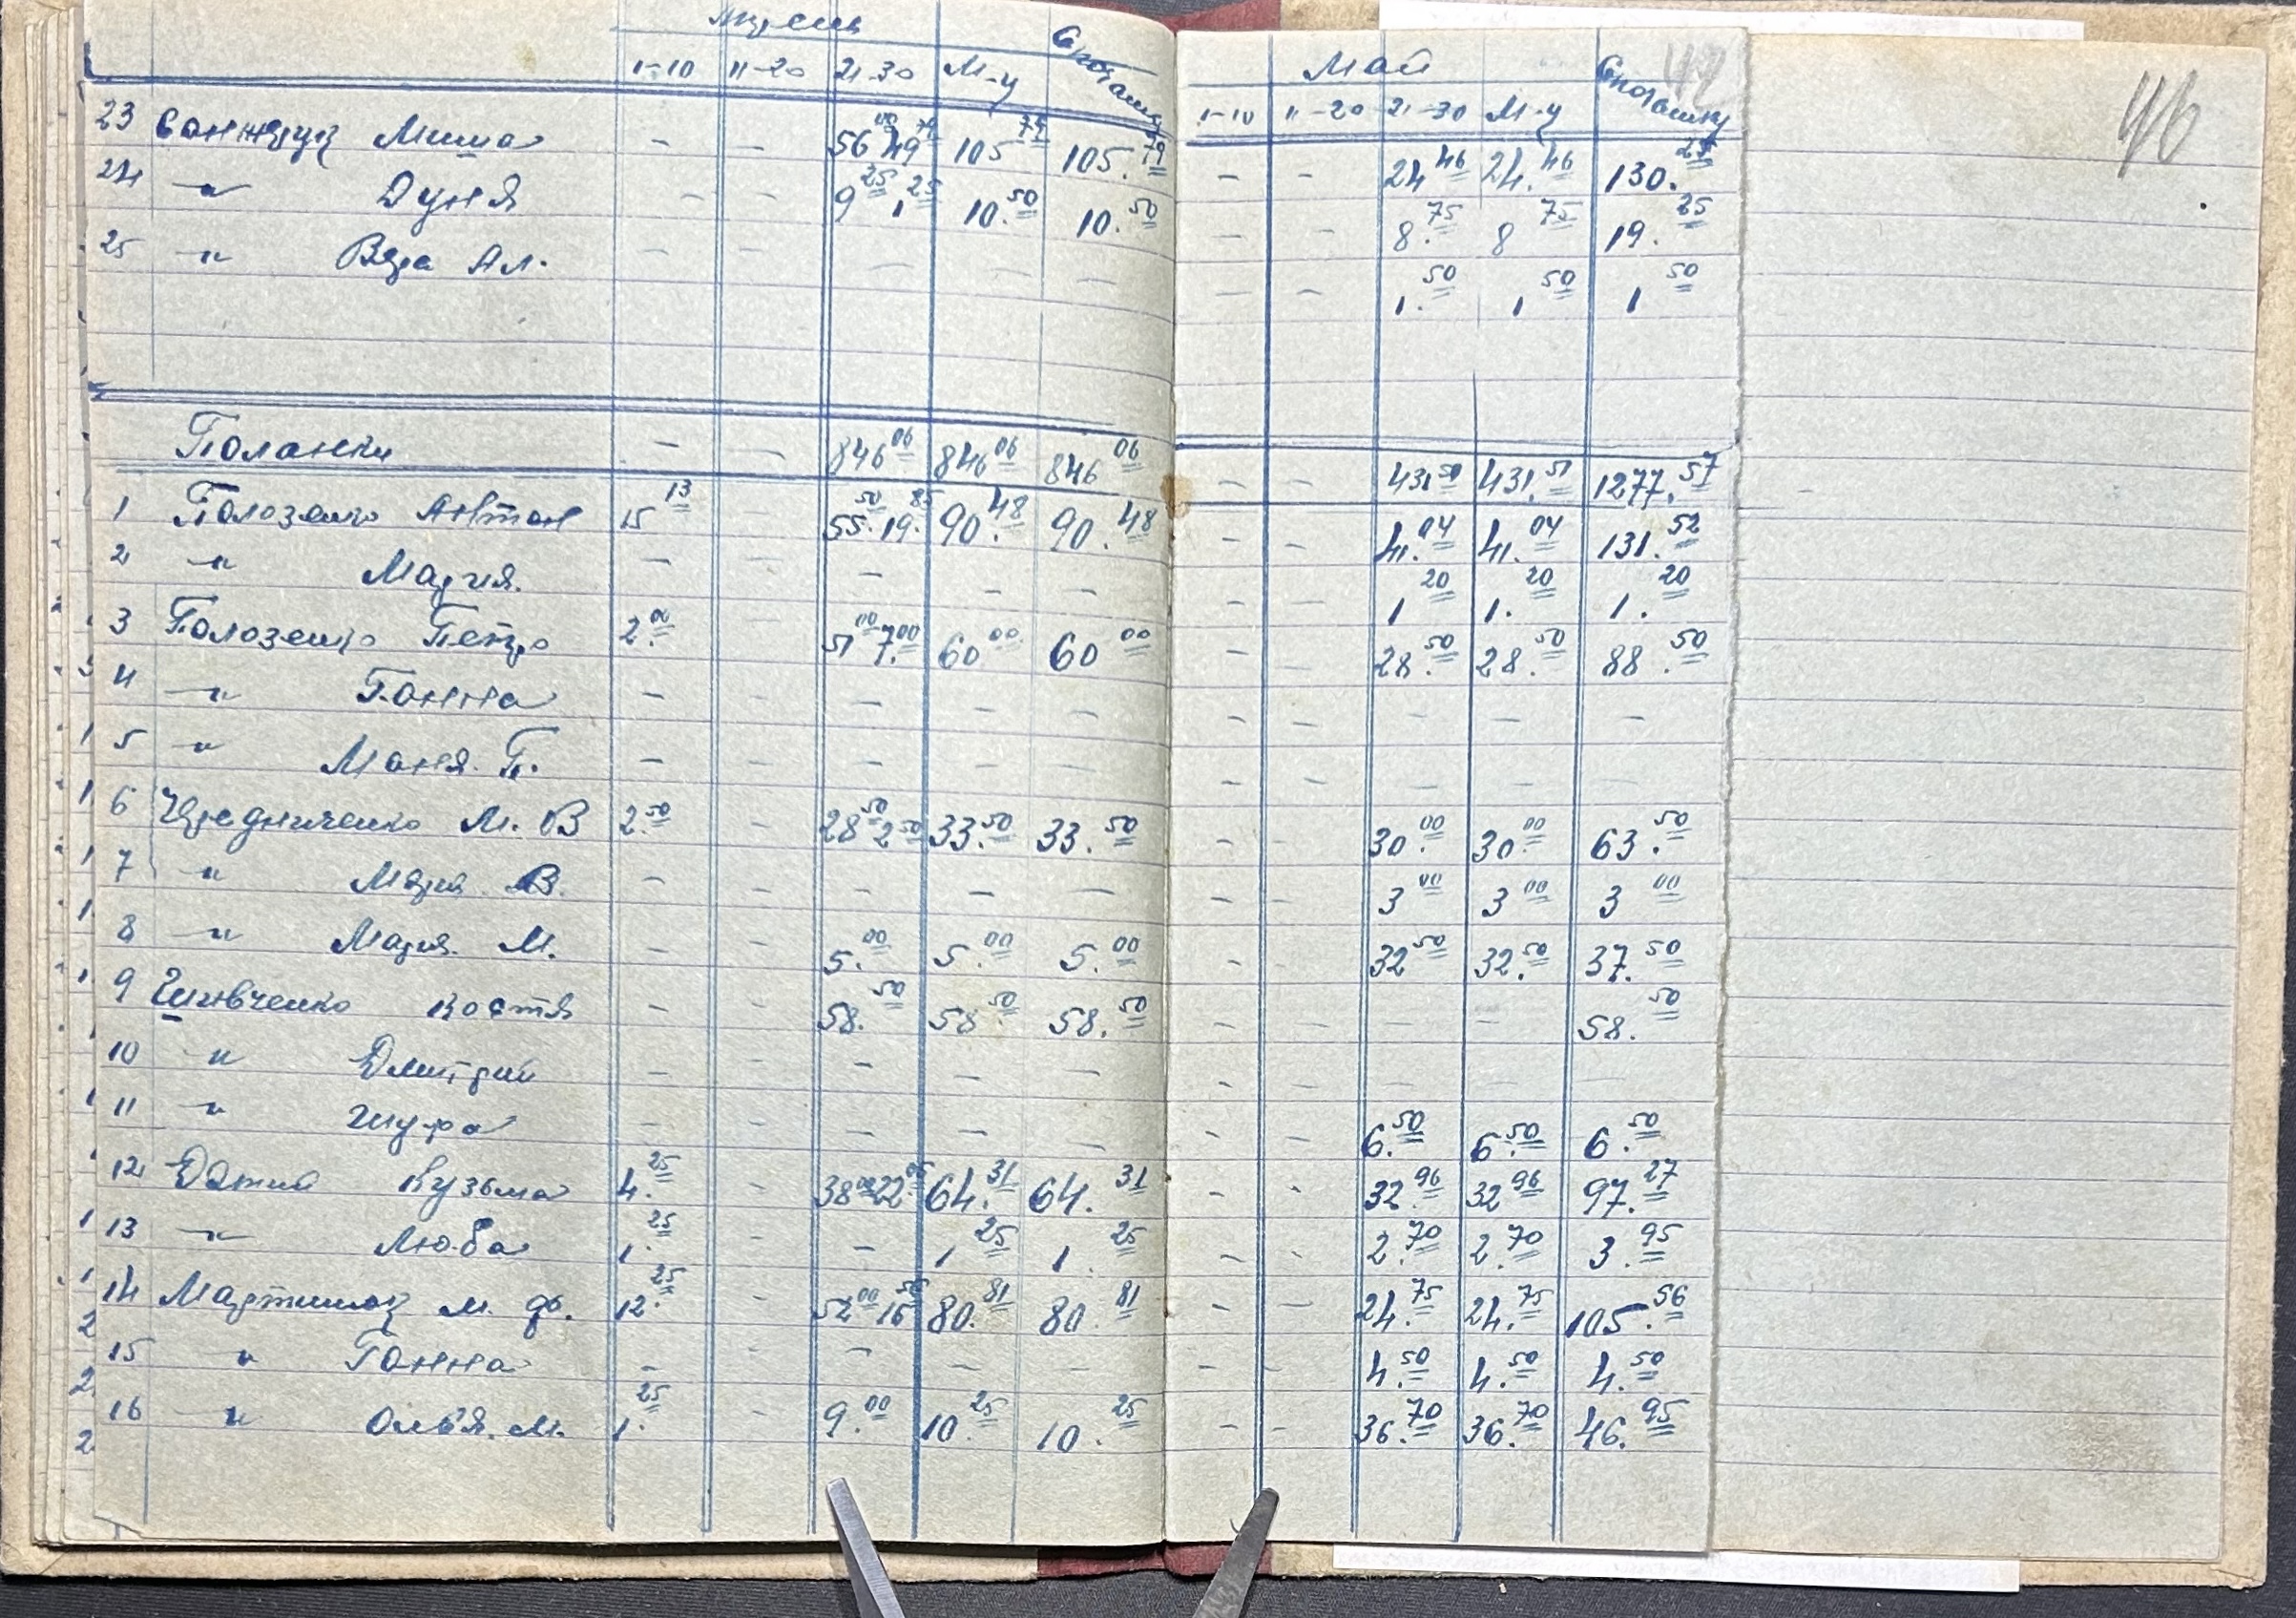 Апрель Май 42 46
1-10 11-20 21-30 М-ц С початку 1-10 11-20 21-30 М-ц С початку
23 Миша - - 56.00 49.79 105.79 105.79 - - 24.46 24.46 130.25
24 -"- Дуня - - 9.25 1.25 10.50 10.50 - - 8.75 8.75 19.25
25 -"- Вера Ал. - - - - - - - 1.50 1.50 1.50
Поланки - - 846.06 846.06 846.06 - - 431.51 431.51 1277.57
1 Полозенко Антон 15.13 - 55.50 19.85 90.48 90.48 - - 41.04 41.04 131.52
2 -"- Мария. - - - - - - - 1.20 1.20 1.20
3 Полозенко Петро 2.00 - 51.00 7.00 60.00 60.00 - - 28.50 28.50 88.50
4 -"- Ганна - - - - - - - - - -
5 -"- Маня. П. - - - - - - - - - -
6 Чередниченко М. В 2.50 - 28.50 2.50 33.50 33.50 - - 30.00 30.00 63.50
7 -"- Мария В. - - - - - - - 3.00 3.00 3.00
8 -"- Мария. М. - - 5.00 5.00 5.00 - - 32.50 32.50 37.50
9 Шевченко Костя - - 58.50 58.50 58.50 - - - - 58.50
10 -"- Дмитрий - - - - - - - - - -
11 -"- Шура - - - - - - - 6.50 6.50 6.50
12 Кузьма 4.25 - 38.00 22.06 64.31 64.31 - - 32.96 32.96 97.27
13 -"- Люба 1.25 - - 1.25 1.25 - - 2.70 2.70 3.95
14 Мартинюк М. Ф. 12.25 - 52.00 16.56 80.81 80.81 - - 24.75 24.75 105.56
15 -"- Ганна - - - - - - - 4.50 4.50 4.50
16 -"- М. 1.25 - 9.00 10.25 10.25 - - 36.70 36.70 46.95